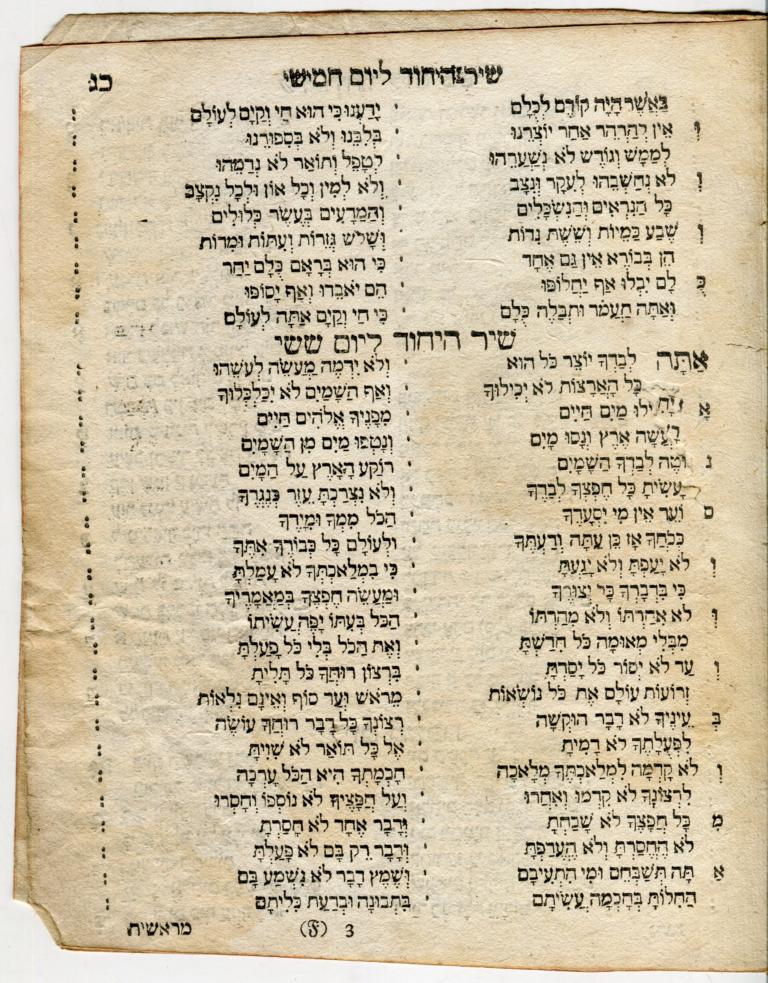 שיר היחוד ליום חמישי כג
כאשר היה קודם לכלם ידענו כי הוא חי וקים לעולם
ו אין להרהר אחר יוצרנו בלבנו ולא בספורנו
לממש וגודש לא נשערהו לטפל ותואר לא נדמהו
ו לא נחשבהו לעקר ונצב ולא למין וכל און ולכל נקצב
כל הנראים והנשכלים והמדעים בעשר כלולים
ו שבע כמיות וששת נדות ושלש גזרות ועתות ומדות
הן בבורא אין גם אחד כי הוא בראם כלם יחד
כ לם יבלו אף יחלופו הם יאבדו ואף יסופו
ואתה תעמד ותבלה כלם כי חי וקים אתה לעולם
שיר היחוד ליום ששי
אתה לבדך יוצר כל הוא ולא ידמה מעשה לעשהו
כל הארצות לא יכילוך ואף השמים לא יכלכלוך
א יחילו מים חיים מפניך אלהים חיים
רעשה ארץ ונסו מים ונטפו מים מן השמים
נ וטה לבדך השמים רוקע הארץ על המים
עשית כל חפצך לבדך ולא נצרכת עזר כנגדך
ס ועד אין מי יסעדך הכל ממך ומידך
ככחך אז כן עתה ודעתך ולעולם כל כבודך אתך
ו לא יעפת ולא יגעת כי במלאכתך לא עמלת
כי בדברך כל יצורך ומעשה חפצך במאמריך
ו לא אחרתו ולא מהרתו הכל בעתו יפה עשיתו
מבלי מאומה כל חדשת ואת הכל בלי כל פעלת
ו על לא יסוד כל יסדת ברצון רוחך כל תלית
זרועות עולם את כל נושאות מראש ועד סוף ואינם נלאות
ב עיניך לא דבר הוקשה רצונך כל דבר רוחך עושה
לפעלתך לא דמית אל כל תואר לא שוית
ו לא קדמה למלאכתך מלאכה חכמתך היא הכל ערכה
לרצונך לא קדמו ואחרו ועל חפציך לא נוספו וחסרו
מ כל חפצך לא שכחת ודבר אחד לא חסרת
לא החסרת ולא העדפת ודבר ריק בם לא פעלת
א תה תשבחם ומי התעיבם ושמץ דבר לא נשמע בם
החלות בחכמה עשיתם בתבונה ובדעת כליתם
3 (F) מראשית